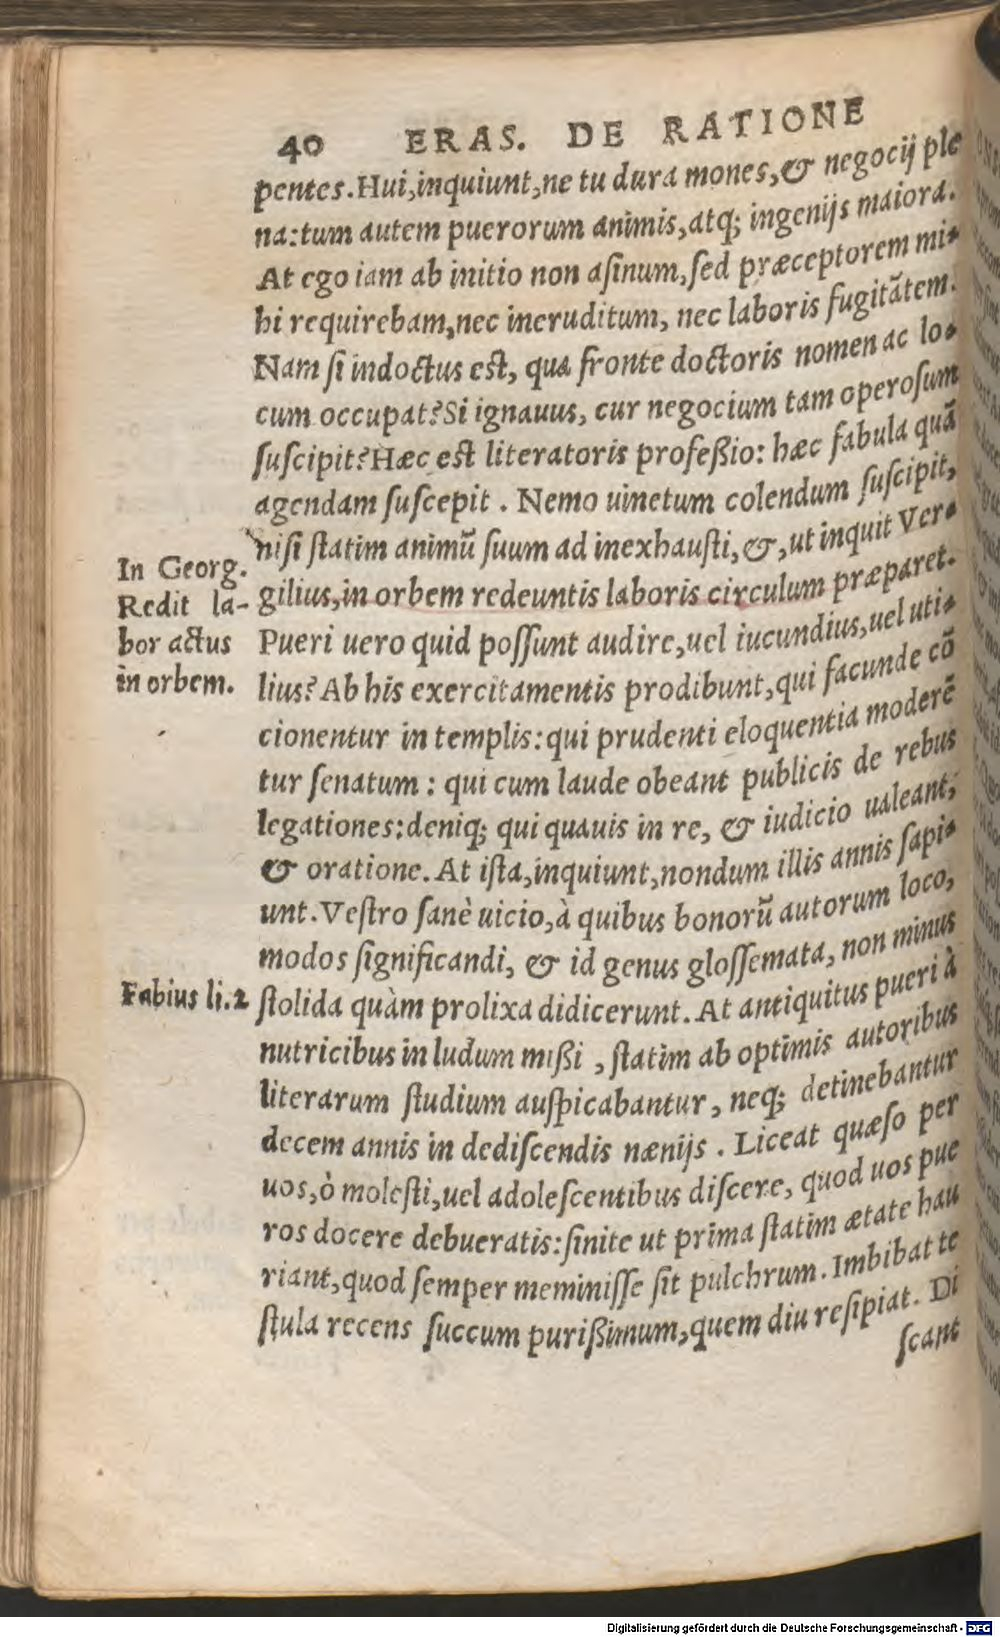 40 ERAS. DE RATIONE
pentes. Hui, inquiunt, ne tu dura mones, & negocij ple
na: tum autem puerorum animis, atq; ingenijs maiora.
At ego iam ab initio non asinum, sed præceptorem mi-
hi requirebam, nec ineruditum, nec laboris fugitātem.
Nam si indoctus est, qua fronte doctoris nomen ac lo-
cum occupat? Si ignauus, cur negocium tam operosum
suscipit? Hæc est literatoris profeßio: hæc fabula quā
agendam suscepit. Nemo uinetum colendum suscipit,
nisi statim animū suum ad inexhausti, &, ut inquit Ver-
gilius, in orbem redeuntis laboris circulum præparet.
Pueri uero quid possunt audire, uel iucundius, uel uti-
lius? Ab his exercitamentis prodibunt, qui facunde cō
cionentur in templis: qui prudenti eloquentia moderē
tur senatum: qui cum laude obeant publicis de rebus
legationes: deniq; qui quauis in re, & iudicio ualeant,
& oratione. At ista, inquiunt, nondum illis annis sapi-
unt. Vestro sanè uicio, à quibus bonorū autorum loco,
modos significandi, & id genus glossemata, non minus
stolida quàm prolixa didicerunt. At antiquitus pueri à
nutricibus in ludum mißi, statim ab optimis autoribus
literarum studium auspicabantur, neq; detinebantur
decem annis in dediscendis nænijs. Liceat quæso per
uos, ò molesti, uel adolescentibus discere, quod uos pue
ros docere debueratis: sinite ut prima statim ætate hau
riant, quod semper meminisse sit pulchrum. Imbibat te
stula recens succum purißimum, quem diu resipiat. Di
scant
In Georg.
Redit la-
bor actus
in orbem.
Fabius li. 2
Digitalisierung gefördert durch die Deutsche Forschungsgemeinschaft - DFG